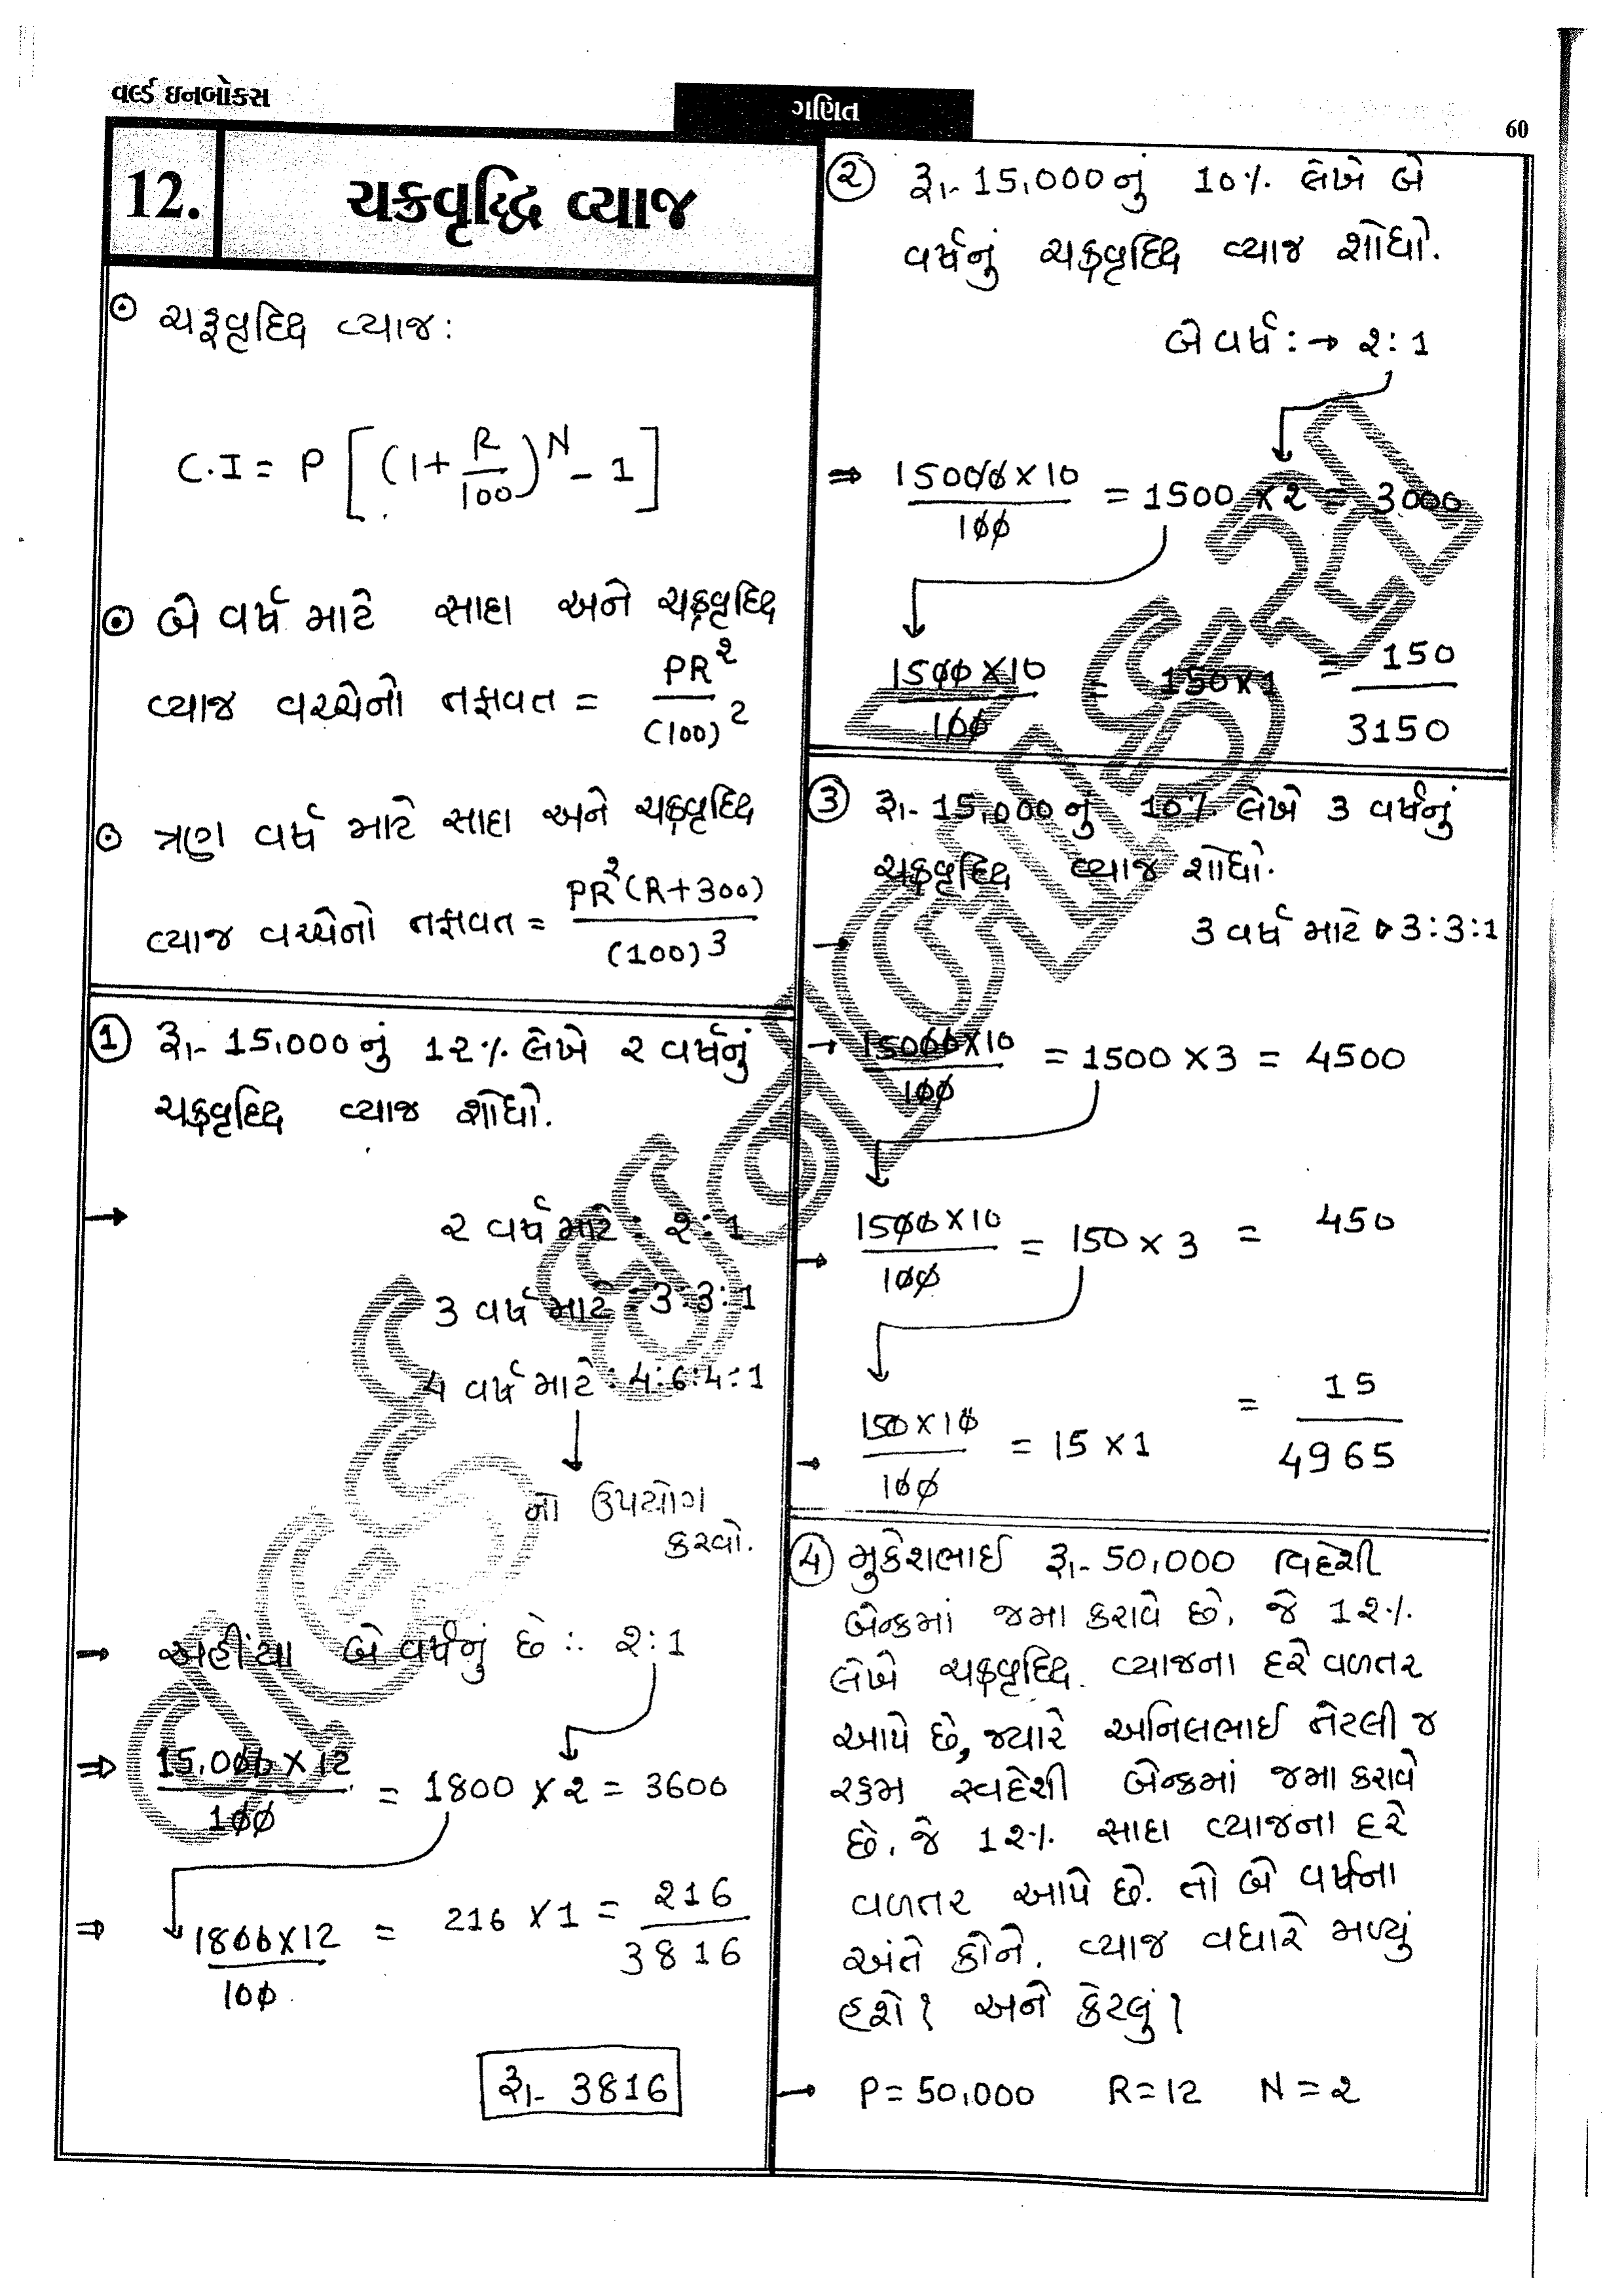 વર્લ્ડ ઇનબોક્સ
ગણિત
60
12.
ચક્રવૃદ્ધિ વ્યાજ
⊙ ચક્રવૃધ્ધિ વ્યાજ :
C.I = P [ (1 + R/100)^N - 1 ]
⊙ બે વર્ષ માટે સાદા અને ચક્રવૃધ્ધિ
વ્યાજ વચ્ચેનો તફાવત = PR²/(100)²
⊙ ત્રણ વર્ષ માટે સાદા અને ચક્રવૃધ્ધિ
વ્યાજ વચ્ચેનો તફાવત = PR²(R+300)/(100)³
① રૂ।.- 15,000 નું 12% લેખે 2 વર્ષનું
ચક્રવૃધ્ધિ વ્યાજ શોધો.
→ 2 વર્ષ માટે : 2:1
3 વર્ષ માટે : 3:3:1
4 વર્ષ માટે : 4:6:4:1
↓
નો ઉપયોગ
કરવો.
→ અહીંયા બે વર્ષનું છે ∴ 2:1
⇒ 15,000 x 12/100 = 1800 x 2 = 3600
⇒ 1800 x 12/100 = 216 x 1 = 216
3816
રૂ।.- 3816
② રૂ।.- 15,000 નું 10% લેખે બે
વર્ષનું ચક્રવૃધ્ધિ વ્યાજ શોધો.
બે વર્ષ : → 2:1
⇒ 15000 x 10/100 = 1500 x 2 = 3000
1500 x 10/100 = 150 x 1 = 150
3150
③ રૂ।.- 15,000 નું 10% લેખે 3 વર્ષનું
ચક્રવૃધ્ધિ વ્યાજ શોધો.
→ 3 વર્ષ માટે ▷ 3:3:1
→ 15000 x 10/100 = 1500 x 3 = 4500
→ 1500 x 10/100 = 150 x 3 = 450
→ 150 x 10/100 = 15 x 1 = 15
4965
④ મુકેશભાઈ રૂ।.- 50,000 વિદેશી
બેન્કમાં જમા કરાવે છે. જે 12%
લેખે ચક્રવૃધ્ધિ વ્યાજના દરે વળતર
આપે છે, જ્યારે અનિલભાઈ તેટલી જ
રકમ સ્વદેશી બેન્કમાં જમા કરાવે
છે. જે 12% સાદા વ્યાજના દરે
વળતર આપે છે. તો બે વર્ષના
અંતે કોને વ્યાજ વધારે મળ્યું
હશે? અને કેટલું?
→ P = 50,000 R = 12 N = 2